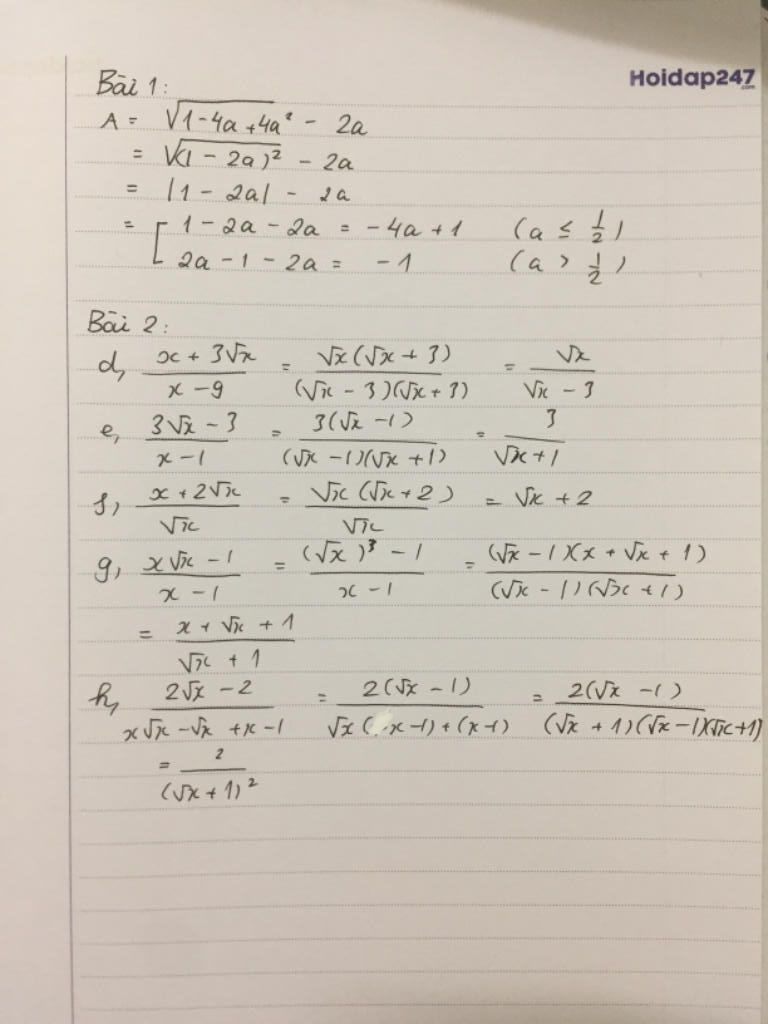 Hoidap247.com
Bài 1:
A = √(1-4a+4a²) - 2a
= √((1 - 2a)²) - 2a
= |1 - 2a| - 2a
= [ 1 - 2a - 2a = -4a + 1 (a ≤ 1/2)
2a - 1 - 2a = -1 (a > 1/2)
Bài 2:
d, (x + 3√x)/(x - 9) = (√x(√x + 3))/((√x - 3)(√x + 3)) = √x/(√x - 3)
e, (3√x - 3)/(x - 1) = (3(√x - 1))/((√x - 1)(√x + 1)) = 3/(√x + 1)
f, (x + 2√x)/√x = (√x(√x + 2))/√x = √x + 2
g, (x√x - 1)/(x - 1) = ((√x)³ - 1)/(x - 1) = ((√x - 1)(x + √x + 1))/((√x - 1)(√x + 1))
= (x + √x + 1)/(√x + 1)
h, (2√x - 2)/(x√x - √x + x - 1) = (2(√x - 1))/(√x(x - 1) + (x - 1)) = (2(√x - 1))/((√x + 1)(√x - 1)(√x + 1))
= 2/(√x + 1)²